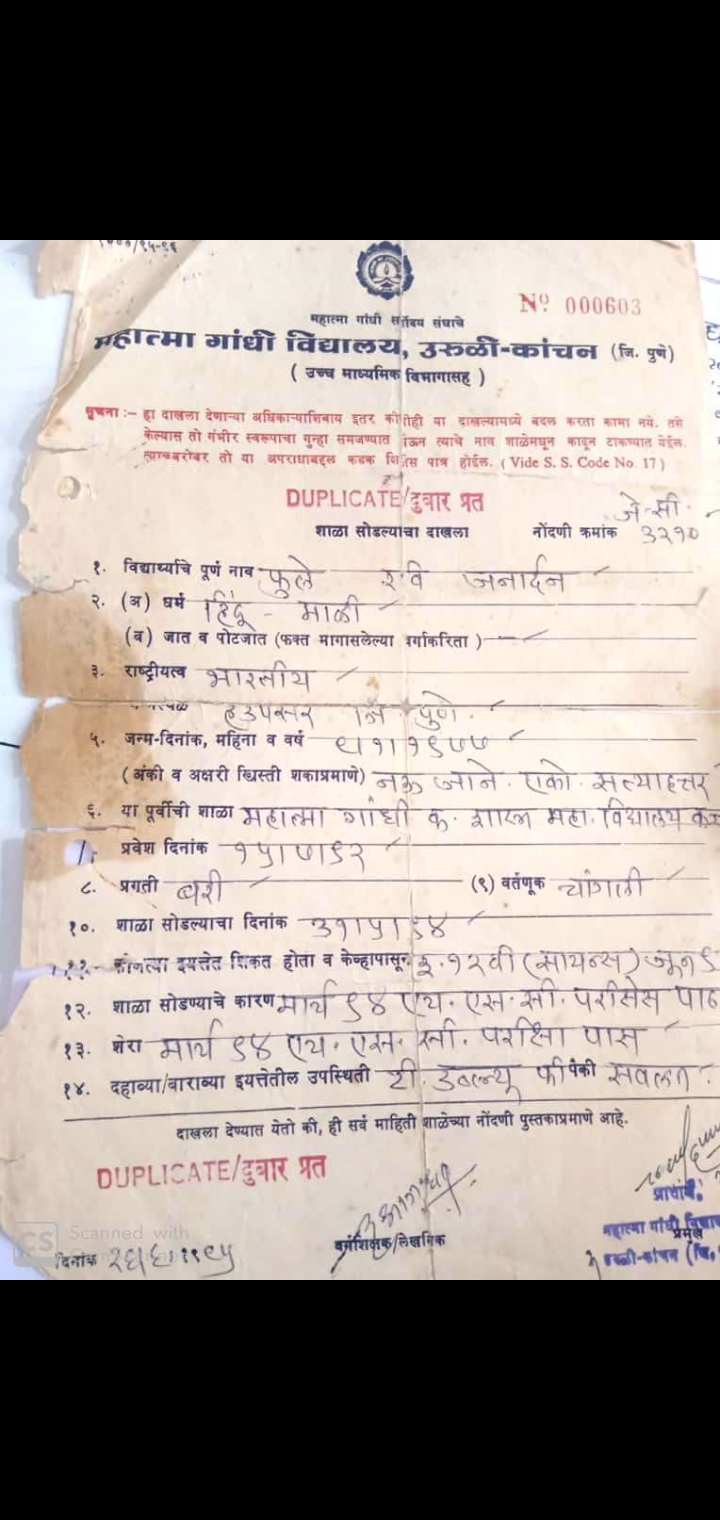 १७०७/९५-९६
Nº 000603
महात्मा गांधी सर्वोदय संघाचे
महात्मा गांधी विद्यालय, उरुळी-कांचन (जि. पुणे)
( उच्च माध्यमिक विभागासह )
सूचना :- हा दाखला देणाऱ्या अधिकाऱ्याशिवाय इतर कोणीही या दाखल्यामध्ये बदल करता कामा नये. तसे
केल्यास तो गंभीर स्वरूपाचा गुन्हा समजण्यात येऊन त्याचे नाव शाळेमधून काढून टाकण्यात येईल.
त्याचबरोबर तो या अपराधाबद्दल कडक शिक्षेस पात्र होईल. ( Vide S. S. Code No. 17 )
DUPLICATE/दुबार प्रत
जे. सी.
शाळा सोडल्याचा दाखला नोंदणी क्रमांक ३२१०
१. विद्यार्थ्याचे पूर्ण नाव फुले रवि जनार्दन
२. (अ) धर्म हिंदू - माळी
(ब) जात व पोटजात (फक्त मागासलेल्या वर्गाकरिता)
३. राष्ट्रीयत्व भारतीय
हडपसर जि. पुणे.
५. जन्म-दिनांक, महिना व वर्ष ९।१।१९७७
(अंकी व अक्षरी ख्रिस्ती शकाप्रमाणे) नऊ जाने. एको. सत्याहत्तर
६. या पूर्वीची शाळा महात्मा गांधी क. शास्त्र महा. विद्यालय
प्रवेश दिनांक १५।७।९२
८. प्रगती बरी (९) वर्तणूक चांगली
१०. शाळा सोडल्याचा दिनांक ३१।५।९४
११. कोणत्या इयत्तेत शिकत होता व केव्हापासून इ. १२वी (सायन्स) जून
१२. शाळा सोडण्याचे कारण मार्च ९४ एच. एस. सी. परीक्षेस पास
१३. शेरा मार्च ९४ एच. एस. सी. परीक्षा पास
१४. दहाव्या/बाराव्या इयत्तेतील उपस्थिती टी. डब्ल्यू फी पैकी सवलत.
दाखला देण्यात येतो की, ही सर्व माहिती शाळेच्या नोंदणी पुस्तकाप्रमाणे आहे.
DUPLICATE/दुबार प्रत
प्राचार्य.
वर्गशिक्षक/लेखनिक
महात्मा गांधी
प्रमुख
उरुळी-कांचन
CS Scanned with
दिनांक २६।६।१९९५